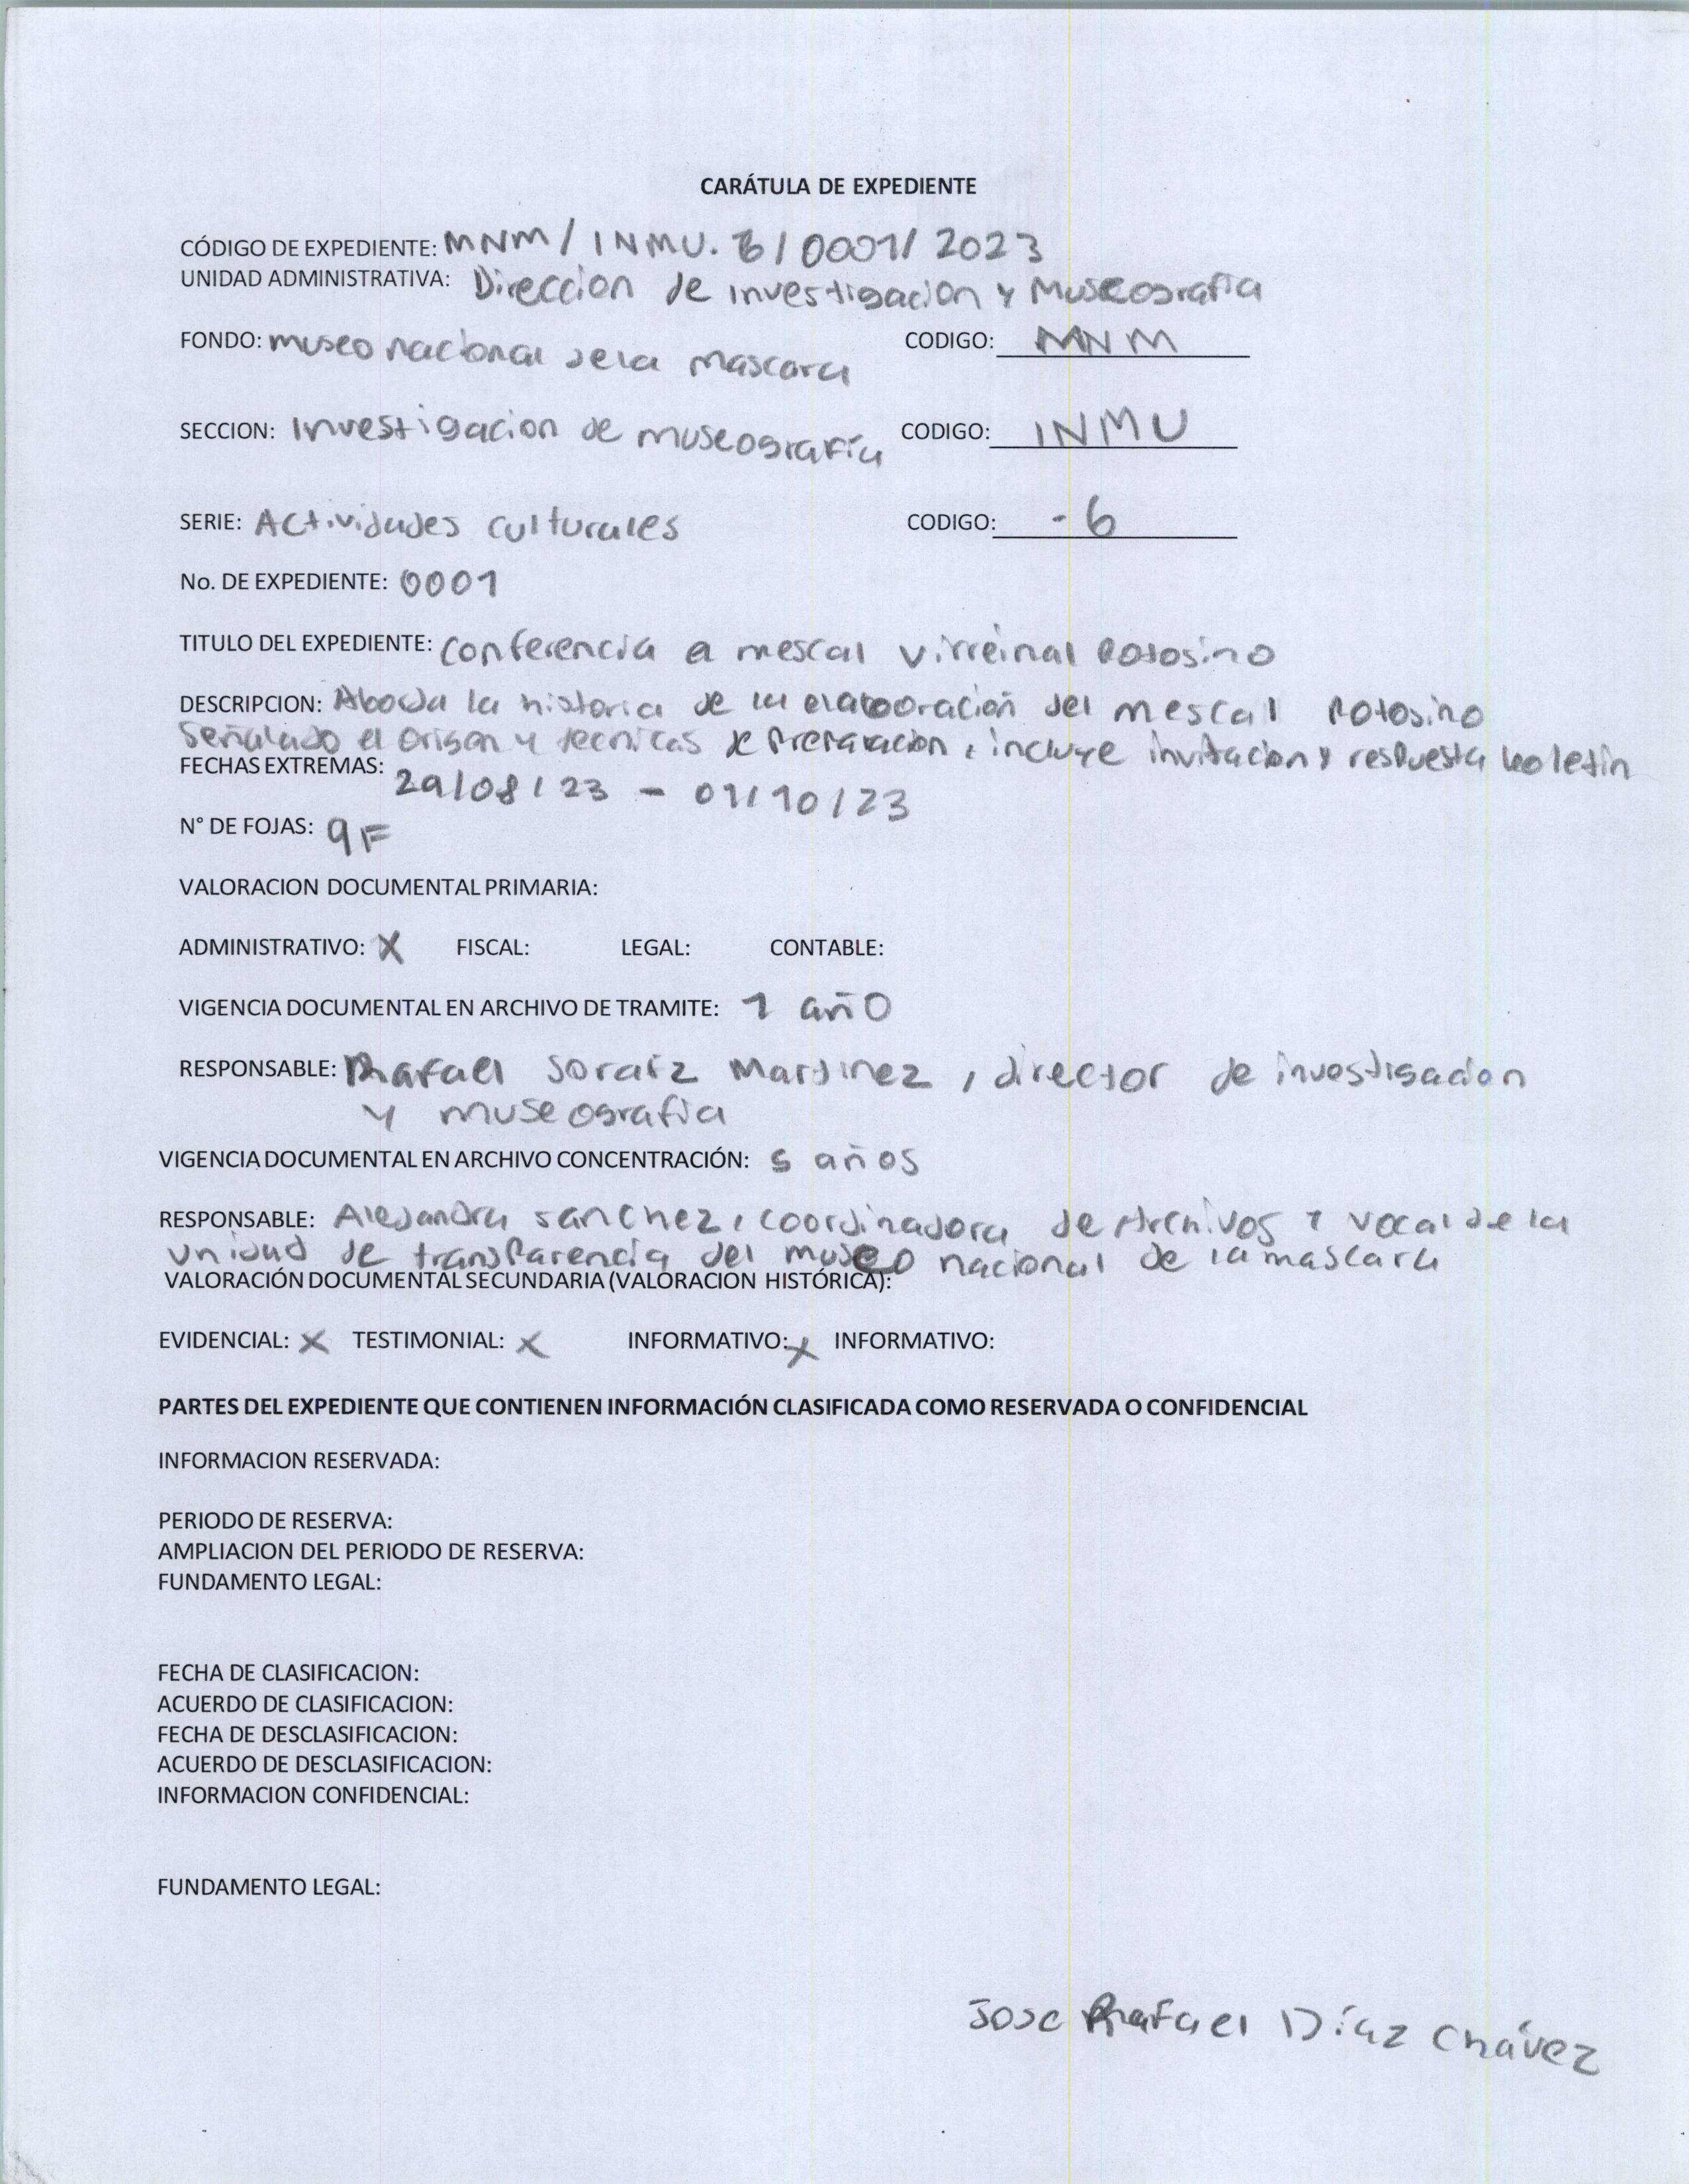 CARÁTULA DE EXPEDIENTE
CÓDIGO DE EXPEDIENTE: MNM / INMU. 6 / 0001 / 2023
UNIDAD ADMINISTRATIVA: Direccion de investigacion y Museografia
FONDO: museo nacional de la mascara CODIGO: MNM
SECCION: Investigacion de museografía CODIGO: INMU
SERIE: Actividades culturales CODIGO: -6
No. DE EXPEDIENTE: 0001
TITULO DEL EXPEDIENTE: Conferencia a mescal virreinal Potosino
DESCRIPCION: Aborda la historia de la elaboración del mescal Potosino
Señalado el origen y tecnicas de Preparacion, incluye invitacion y respuesta boletin
FECHAS EXTREMAS: 29/08/23 - 01/10/23
N° DE FOJAS: 9F
VALORACION DOCUMENTAL PRIMARIA:
ADMINISTRATIVO: X FISCAL: LEGAL: CONTABLE:
VIGENCIA DOCUMENTAL EN ARCHIVO DE TRAMITE: 1 año
RESPONSABLE: Rafael Soraiz Martinez, director de investigacion
y museografia
VIGENCIA DOCUMENTAL EN ARCHIVO CONCENTRACIÓN: 5 años
RESPONSABLE: Alejandra Sanchez, coordinadora de Archivos y vocal de la
unidad de transparencia del museo nacional de la mascara
VALORACIÓN DOCUMENTAL SECUNDARIA (VALORACION HISTÓRICA):
EVIDENCIAL: X TESTIMONIAL: X INFORMATIVO: X INFORMATIVO:
PARTES DEL EXPEDIENTE QUE CONTIENEN INFORMACIÓN CLASIFICADA COMO RESERVADA O CONFIDENCIAL
INFORMACION RESERVADA:
PERIODO DE RESERVA:
AMPLIACION DEL PERIODO DE RESERVA:
FUNDAMENTO LEGAL:
FECHA DE CLASIFICACION:
ACUERDO DE CLASIFICACION:
FECHA DE DESCLASIFICACION:
ACUERDO DE DESCLASIFICACION:
INFORMACION CONFIDENCIAL:
FUNDAMENTO LEGAL:
Jose Rafael Díaz Chávez